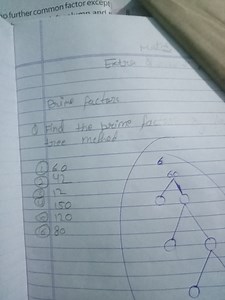 to further common factor except
Extra
Prime factors
Find the prime fac
tree method
① 60
② 42
③ 12
④ 150
⑤ 120
⑥ 80
6
60